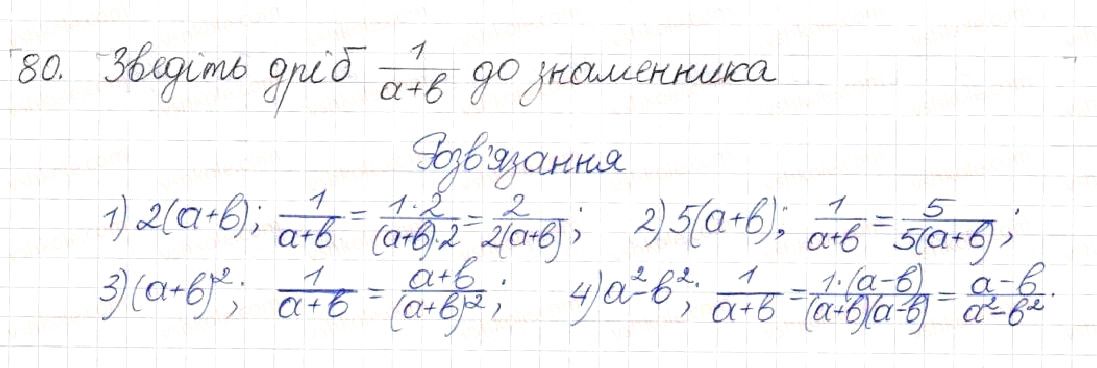 80. Зведіть дріб 1/(a+b) до знаменника
Розв'язання
1) 2(a+b); 1/(a+b) = (1·2)/((a+b)·2) = 2/(2(a+b)); 2) 5(a+b); 1/(a+b) = 5/(5(a+b));
3) (a+b)²; 1/(a+b) = (a+b)/((a+b)²); 4) a²-b²; 1/(a+b) = (1·(a-b))/((a+b)(a-b)) = (a-b)/(a²-b²).